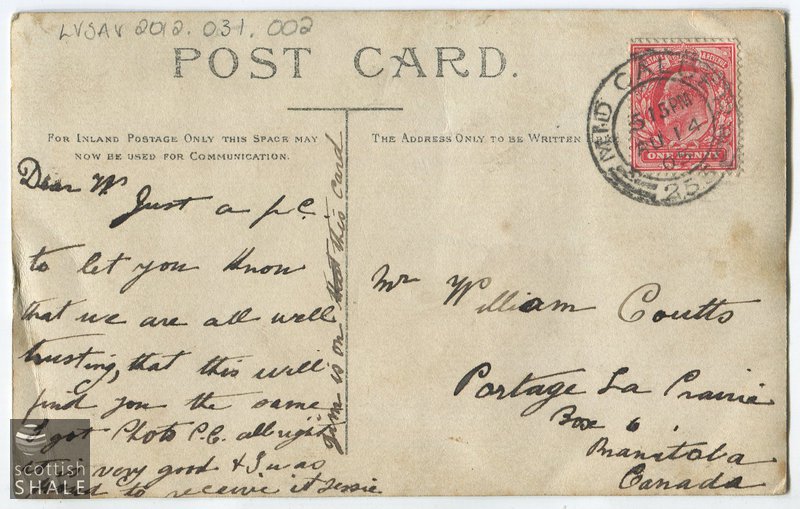 LVSAV 2012.031.002
POST CARD.
FOR INLAND POSTAGE ONLY THIS SPACE MAY
NOW BE USED FOR COMMUNICATION.
THE ADDRESS ONLY TO BE WRITTEN
MID CALDER
5 15 PM
JU 14
ONE PENNY
Dear Wm
Just a p.c.
to let you know
that we are all well
trusting, that this will
find you the same
I got Photo P.C. all right
very good & I was
to receive it Jessie
Jim is on this card
Mr William Coutts
Portage La Prairie
Box 6
Manitoba
Canada
scottish
SHALE